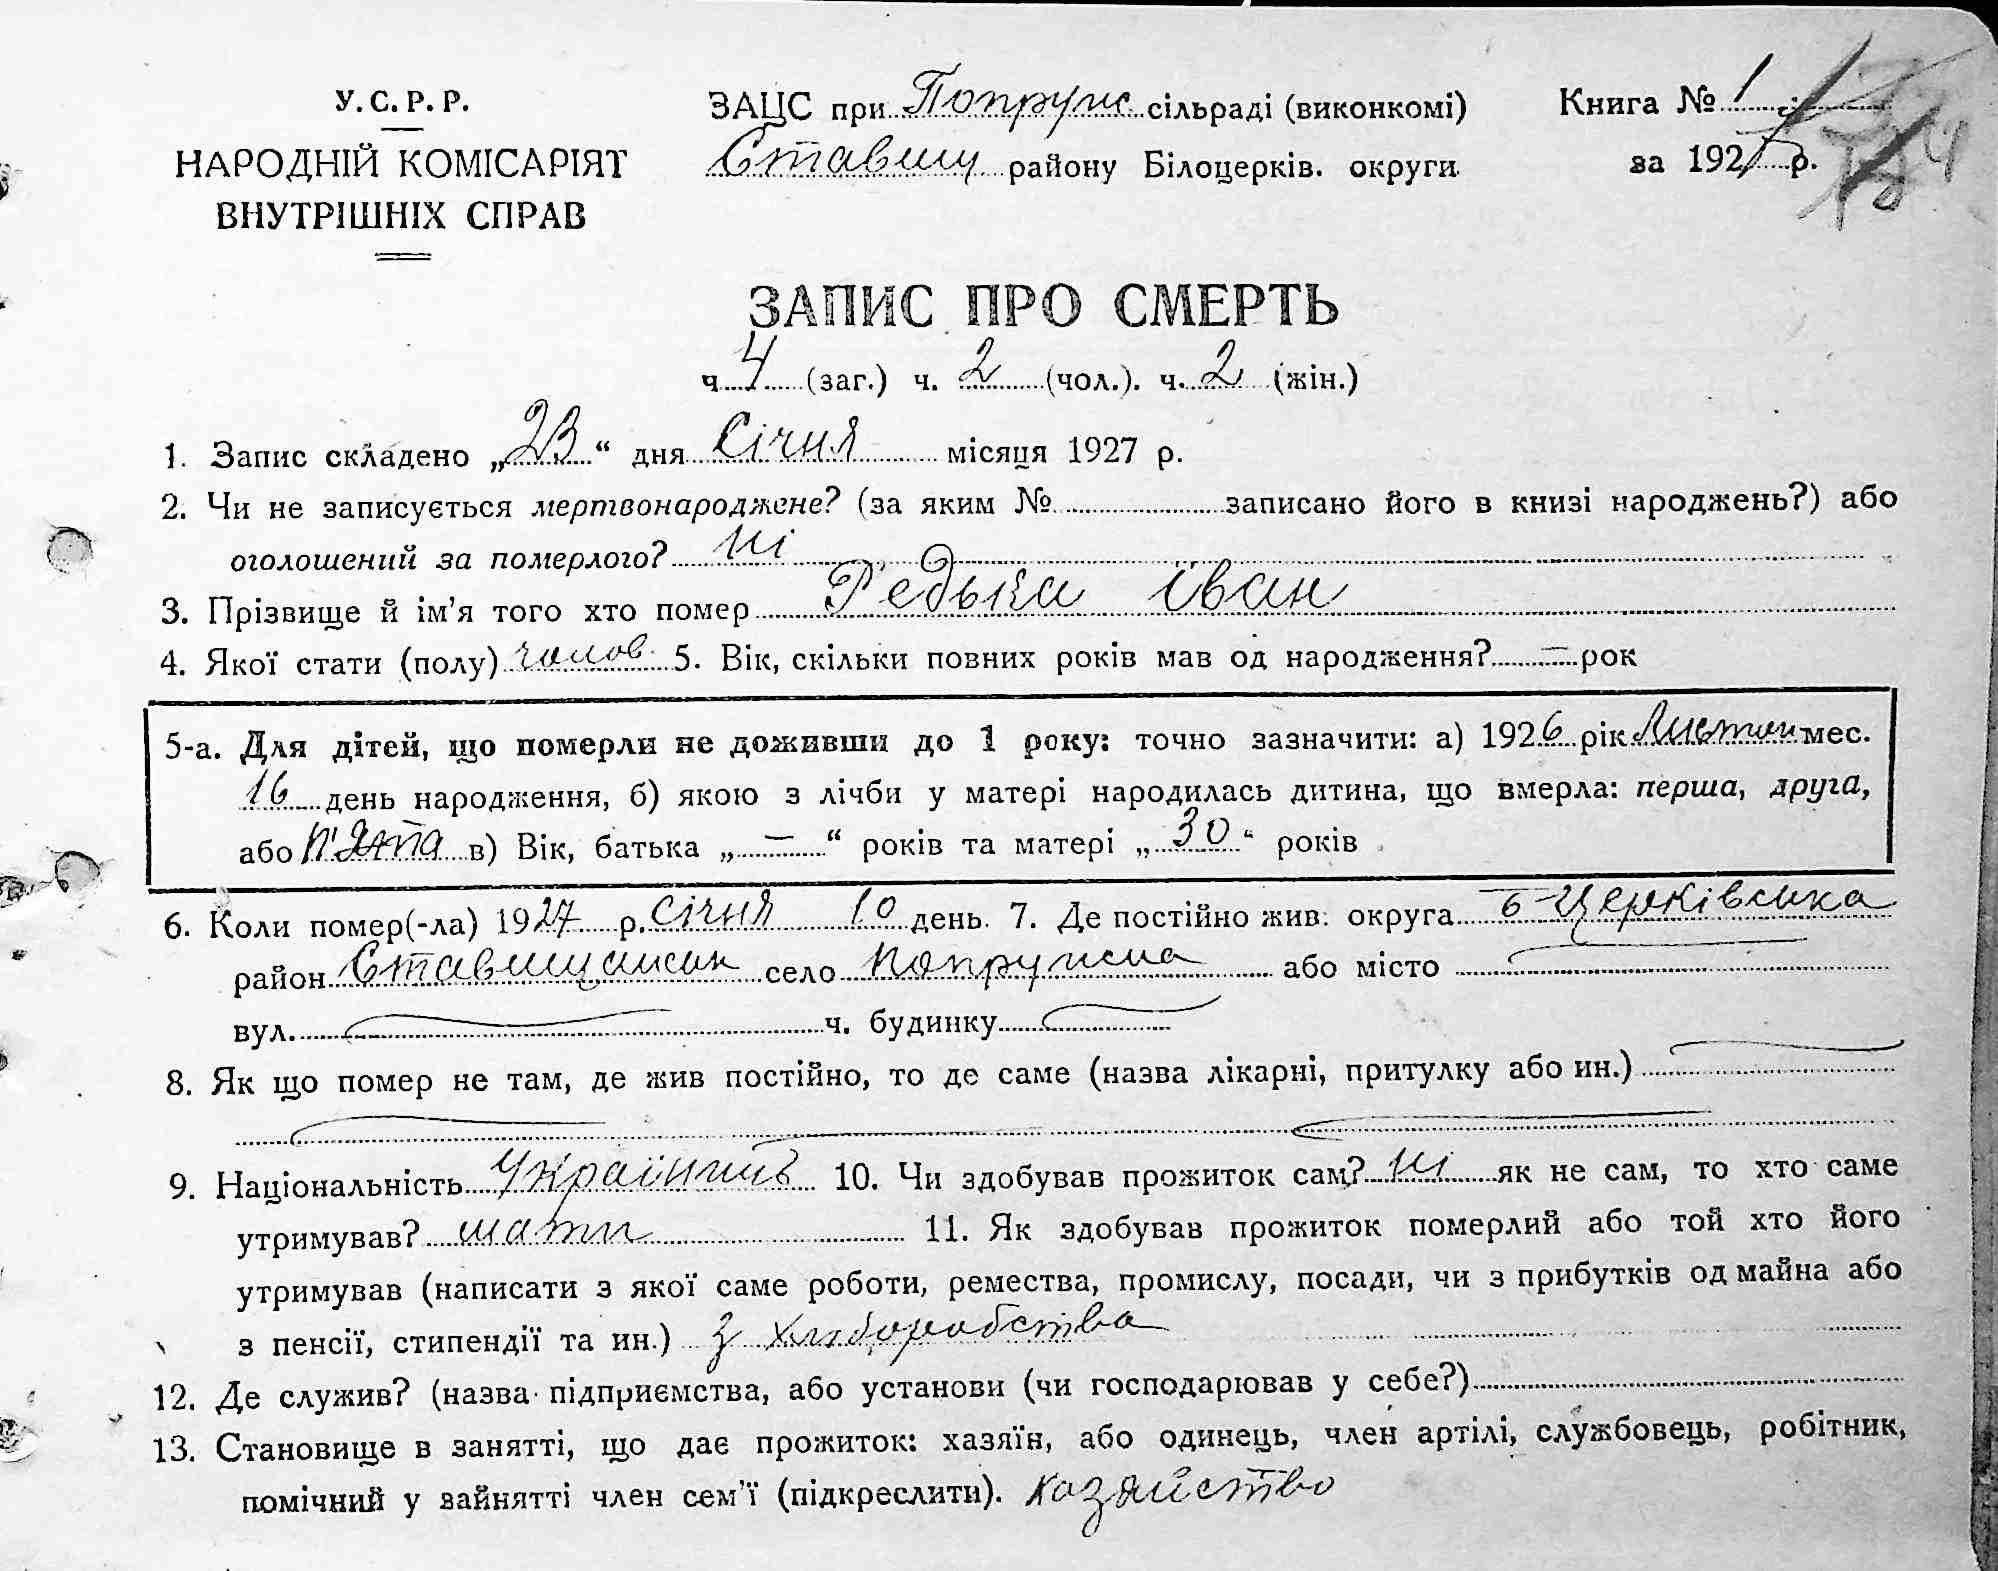 У.С.Р.Р.
НАРОДНІЙ КОМІСАРІЯТ
ВНУТРІШНІХ СПРАВ
ЗАЦС при Попруж сільраді (виконкомі)
Ставищ району Білоцерків. округи
Книга № 1
за 1927 р.
ЗАПИС ПРО СМЕРТЬ
ч 4 (заг.) ч. 2 (чол.). ч. 2 (жін.)
1. Запис складено „23“ дня Січня місяця 1927 р.
2. Чи не записується мертвонароджене? (за яким № записано його в книзі народжень?) або
оголошений за померлого? Ні
3. Прізвище й ім’я того хто помер Редька Іван
4. Якої стати (полу) чолов. 5. Вік, скільки повних років мав од народження? — рок
5-а. Для дітей, що померли не доживши до 1 року: точно зазначити: а) 1926 рік Листоп мес.
16 день народження, б) якою з лічби у матері народилась дитина, що вмерла: перша, друга,
або п'ята в) Вік, батька „—“ років та матері „30“ років
6. Коли помер(-ла) 1927 р. січня 10 день. 7. Де постійно жив: округа Б-Церківська
район Ставищанськ село Попружна або місто
вул. ч. будинку
8. Як що помер не там, де жив постійно, то де саме (назва лікарні, притулку або ин.)
9. Національність Українців 10. Чи здобував прожиток сам? Ні як не сам, то хто саме
утримував? мати 11. Як здобував прожиток померлий або той хто його
утримував (написати з якої саме роботи, ремества, промислу, посади, чи з прибутків од майна або
з пенсії, стипендії та ин.) з хліборобства
12. Де служив? (назва підприємства, або установи (чи господарював у себе?)
13. Становище в занятті, що дає прожиток: хазяїн, або одинець, член артілі, службовець, робітник,
помічний у зайнятті член сем’ї (підкреслити). хазяйство